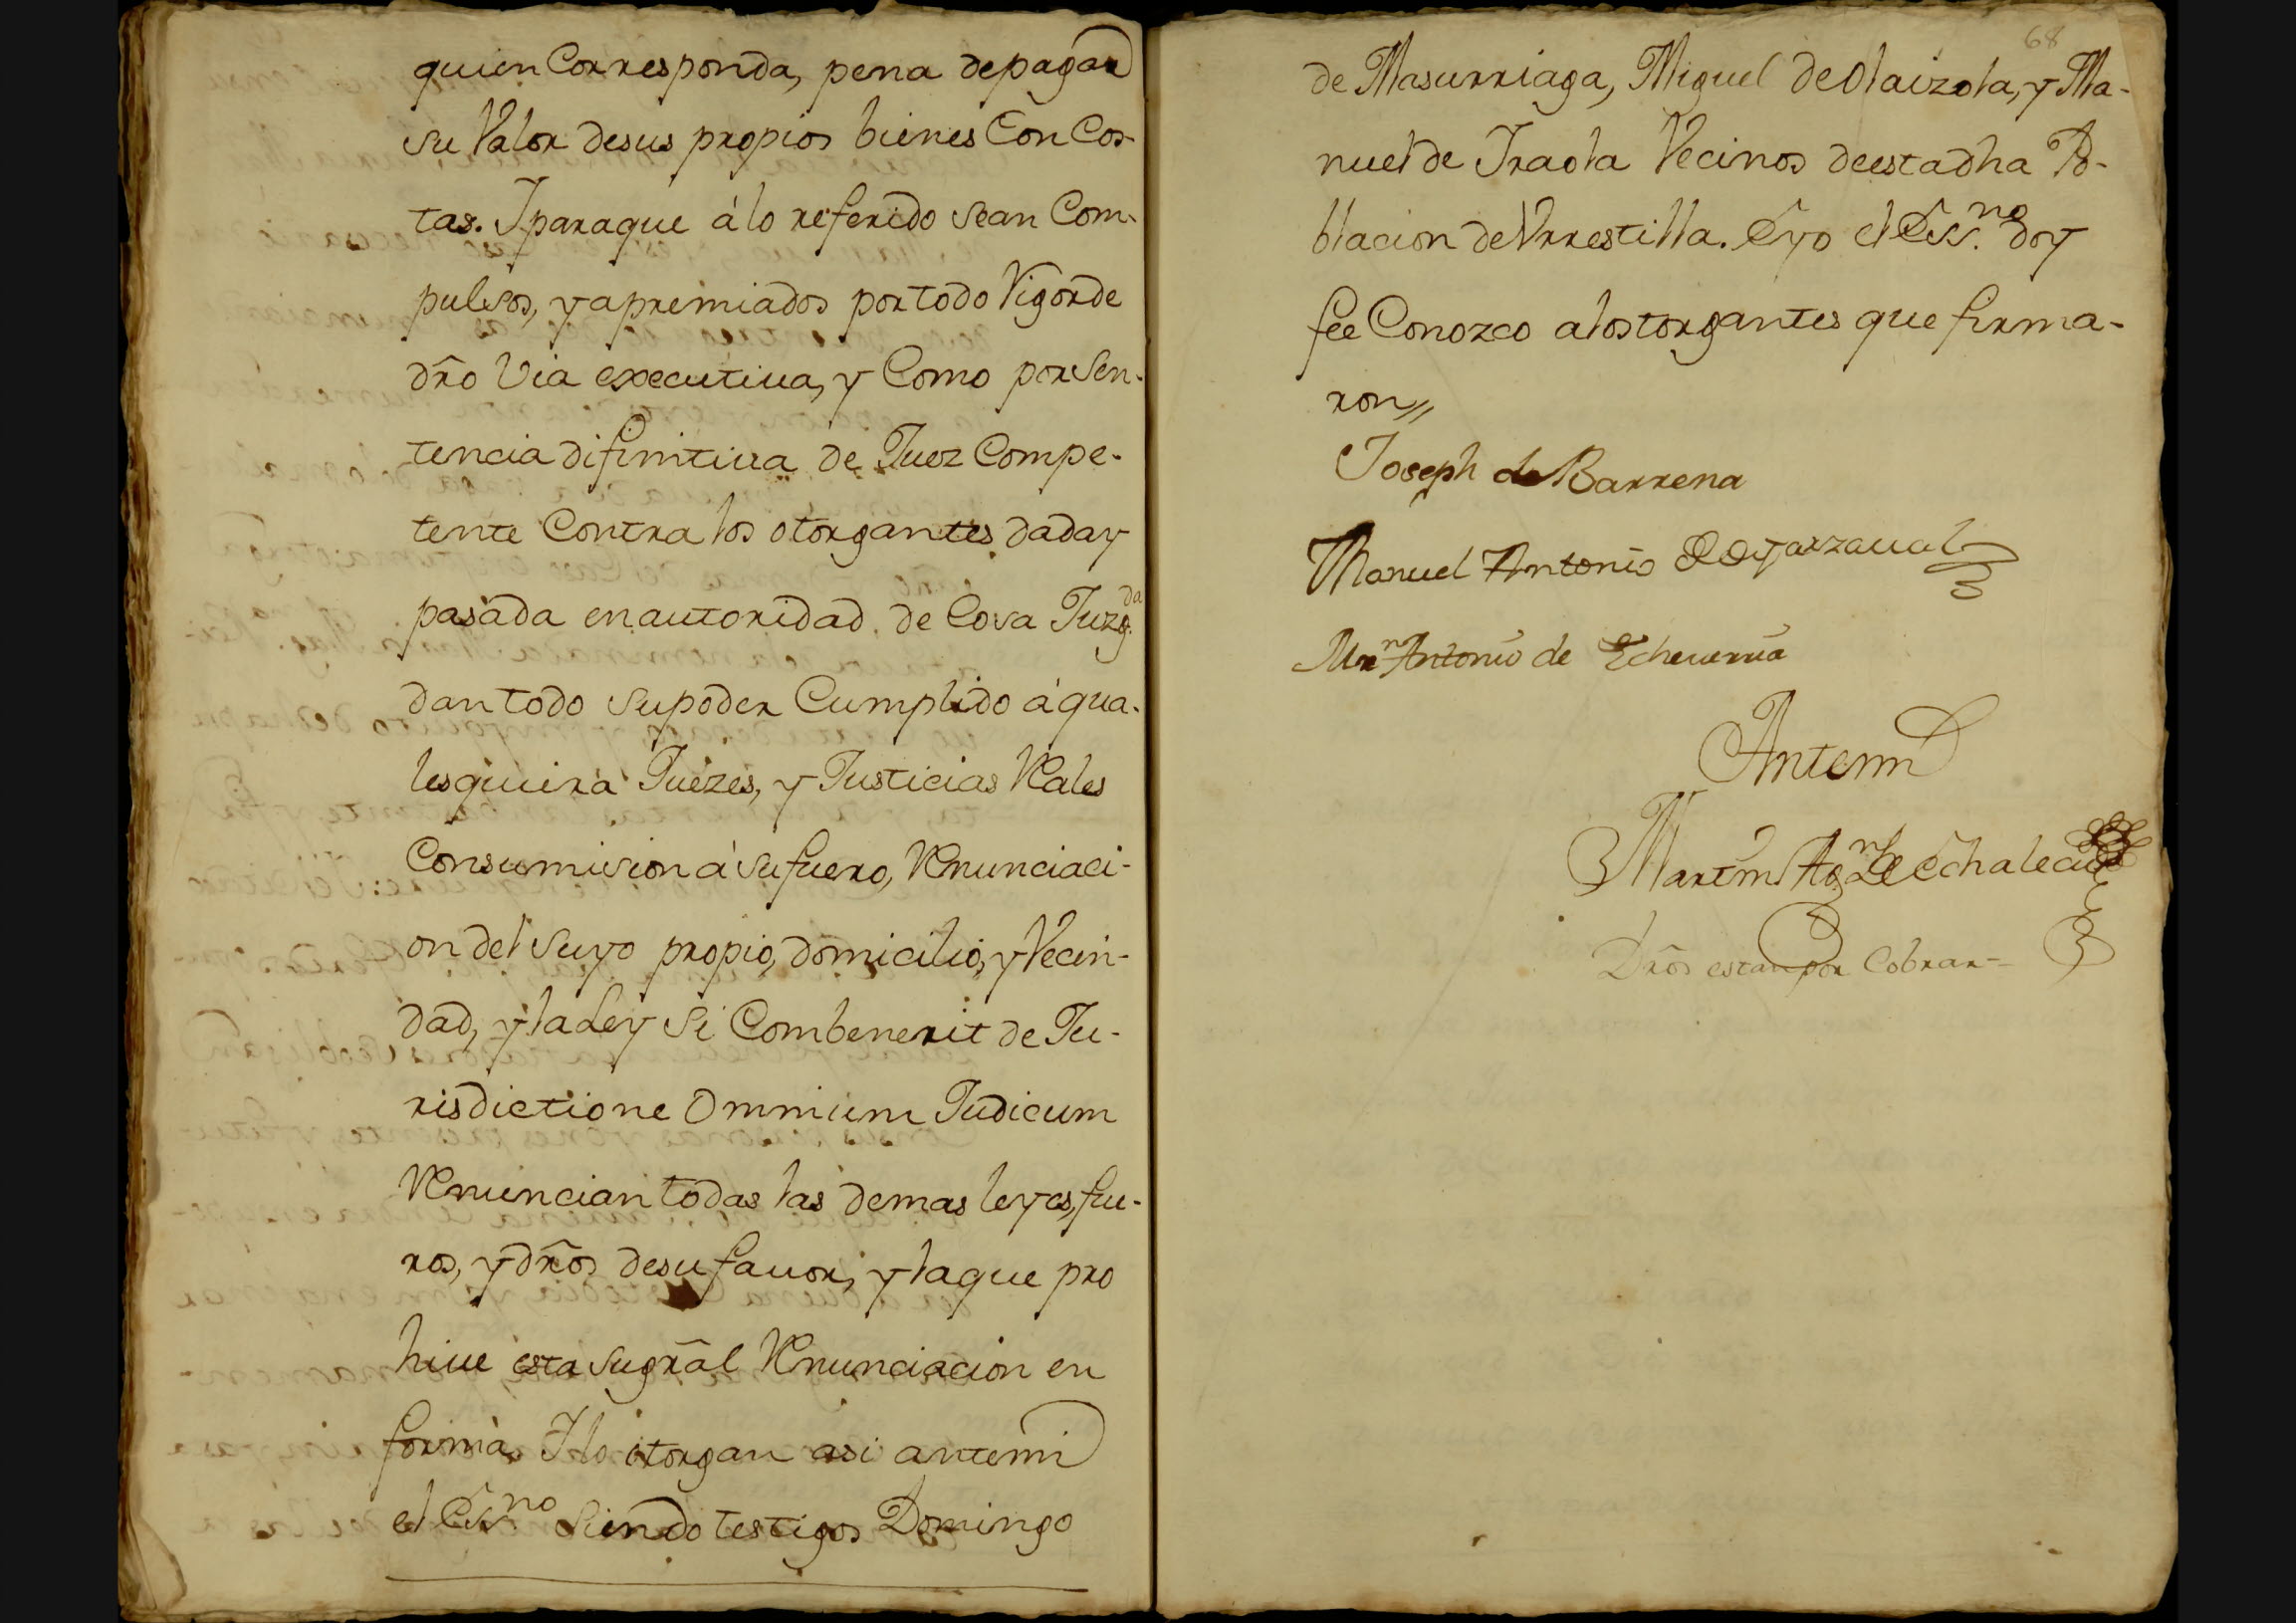 quien Corresponda, pena de pagar
su Valor de sus propios bienes Con Cos-
tas. Y paraque á lo referido sean Com-
pulsos, y apremiados por todo Vigor de
dr̃o Via executiua, y Como por Sen-
tencia difinitiua de Juez Compe-
tente Contra los otorgantes dada y
pasada en autoridad de Cosa Juzg.da
dan todo su poder Cumplido á qua-
lesquiera Juezes, y Justicias Rales
Consumision á su fuero, Renunciaci-
on del suyo propio, domicilio, y Vecin-
dad, y la Ley Si Combenerit de Ju-
risdictione Omnium Judicum
Renuncian todas las demas leyes, fue-
ros, y dr̃os de su fauor, y la que pro
hiue esta su gr̃al Renunciacion en
forma. Y lo otorgan asi antemi
el Ess.no Siendo testigos Domingo
68
de Masurriaga, Miguel de Olaizola, y Ma-
nuel de Iraola Vecinos de esta dha Po-
blacion de Vrrestilla. E yo el Ess.no doy
fee Conozco a los torgantes que firma-
ron//
Joseph de Barrena
Manuel Antonio de Oyarzaual
Mrn Antonio de Echeuerria
Antemi
Martin Ag.n de Echalecu
Dr̃os estan por Cobrar=